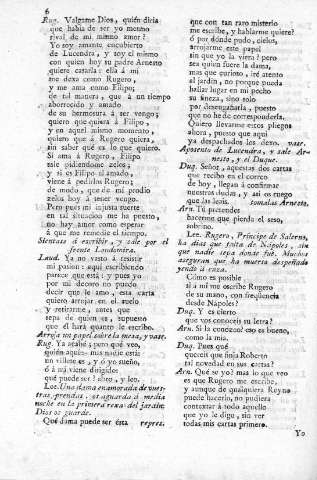 6
Rug. Valgame Dios, quién diria
que habia de ser yo mesmo
rival de mi mismo amor?
Yo soy amante encubierto
de Lucendra, y soy el mismo
con quien hoy su padre Arnesto
quiere casarla: ella á mi
me dexa como Rugero,
y me ama como Filipo;
de tal manera, que á un tiempo
aborrecido y amado
de su hermosura á ser vengo;
quiero que quiera á Filipo,
y en aquel mismo momento,
quiero que á Rugero quiera,
sin saber qué es lo que quiero.
Si ama á Rugero, Filipo
sale pidiendome zelos;
y si es Filipo el amado,
viene á pedirlos Rugero;
de modo, que de mí propio
zelos hoy á tener vengo.
Pero pues mi injusta suerte
en tal situacion me ha puesto,
no hay amor como esperar
á que me remedie el tiempo.
Sientase á escribir, y sale por el
frente Laudomira.
Laud. Ya no basta á resistir
mi pasion: aqui escribiendo
parece que está; y pues yo
por mi decoro no puedo
decir que le amo, esta carta
quiero arrojar en el suelo
y retirarme, antes que
sepa de quien es, supuesto
que él hará quanto le escribo.
Arroja un papel sobre la mesa, y vase.
Rug. Ya acabé; pero qué veo,
quién aquí? mas nadie está:
un villete es, y ó yo sueño,
ó á mí viene dirigido:
qué puede ser? abro, y leo.
Lee. Una dama enamorada de vues-
tras prendas, os aguarda á media
noche en la primera rexa del jardin:
Dios os guarde.
Qué dama puede ser ésta repres.
que con tan raro misterio
me escribe, y hablarme quiere?
ó por dónde pudo, cielos,
arrojarme este papel
sin que yo la viera? pero
sea quien fuere la dama,
mas que curioso, iré atento
al jardin, no porque pueda
hallar lugar en mi pecho
su fineza, sino solo
por desengañarla, puesto
que no he de corresponderla.
Quiero llevarme estos pliegos
ahora, puesto que aqui
ya despachados les dexo. vase.
Aposento de Lucendra, y sale Ar-
nesto, y el Duque.
Duq. Señor, aquestas dos cartas
que recibo en el correo
de hoy, llegan á confirmar
nuestras dudas, y así os ruego
que las leais. tomalas Arnesto.
Arn. Tú pretendes
hacerme que pierda el seso,
sobrino.
Lee. Rugero, Príncipe de Salerno,
ha dias que falta de Nápoles, sin
que nadie sepa donde fué. Muchos
aseguran que ha muerto despeñado
yendo á caza.
Cómo es posible
si á mí me escribe Rugero
de su mano, con freqüencia
desde Nápoles?
Duq. Y es cierto
que vos conoceis su letra?
Arn. Si la conozco? eso es bueno,
como la mia.
Duq. Pues qué
quereis que finja Roberto
tal novedad en sus cartas?
Arn. Qué se yo? mas lo que veo
es que Rugero me escribe,
y aunque de qualquiera Reyno
puede hacerlo, no pudiera
contextar á todo aquello
que yo le digo, sin ver
todas mis cartas primero.
Yo